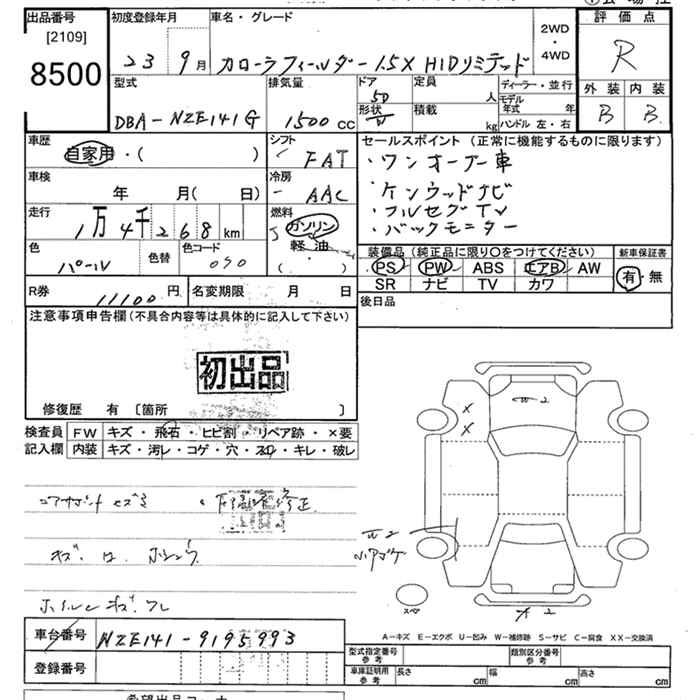 出品番号
[2109]
8500
初度登録年月
23 9月
車名・グレード
カローラフィールダー 1.5X HIDリミテッド
2WD
・
4WD
評価点
R
外装 内装
B B
型式
DBA-NZE141G
排気量
1500 cc
ドア
5D
形状
W
定員
人
積載
kg
ディーラー・並行
モデル年式 年
ハンドル 左・右
車歴
自家用・( )
シフト
FAT
車検
年 月( 日)
冷房
AAC
走行
1万4千268km
燃料
ガソリン
軽油
( ・ )
色
パール
色替
色コード
070
R券
11100円
名変期限 月 日
セールスポイント(正常に機能するものに限ります)
・ワンオーナー車
・ケンウッドナビ
・フルセグTV
・バックモニター
装備品(純正品に限り○をつけてください)
PS PW ABS エアB AW
SR ナビ TV カワ
新車保証書
有・無
後日品
注意事項申告欄(不具合内容等は具体的に記入して下さい)
初出品
修復歴 有 〔箇所 〕
検査員
記入欄
FW キズ・飛石・ヒビ割・リペア跡・×要
内装 キズ・汚レ・コゲ・穴・スレ・キレ・破レ
コアサポート
修正
W2
X
X
W2
X2
スペア
A−キズ E−エクボ U−凹み W−補修跡 S−サビ C−腐食 XX−交換済
車台番号
NZE141-9195993
登録番号
型式指定番号
参考
類別区分番号
参考
車庫証明用
参考
長さ cm
幅 cm
高さ cm